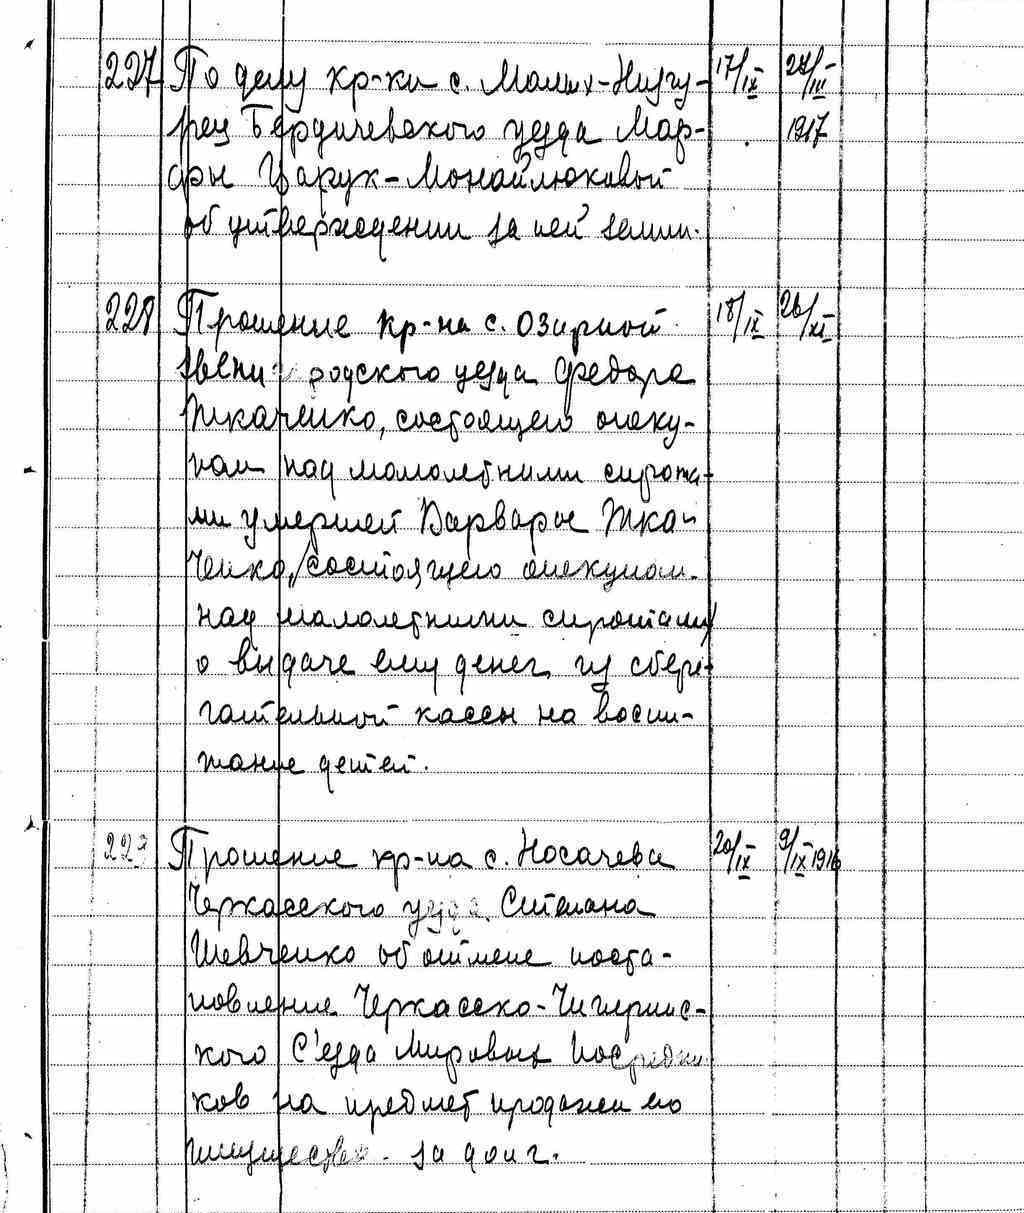 227 По делу кр-ки с. Малых-Низгу- 17/IX 27/III
рец Бердичевского уезда Мар- 1917
фы Царук-Монайлюковой
об утверждении за ней земли.
228 Прошение кр-на с. Озирной 18/IX 26/XI
Звенигородского уезда Федора
Ткаченко, состоящего опеку-
ном над малолетними сирота-
ми умершей Варвары Тка-
ченко, /состоящего опекуном
над малолетними сиротами/
о выдаче ему денег из сбере-
гательной кассы на воспи-
тание детей.
229 Прошение кр-на с. Носачева 20/IX 9/IX 1916
Черкасского уезда Степана
Шевченко об отмене поста-
новление Черкасско-Чигиринс-
кого С'езда Мировых Посредни
ков на предмет продажи его
имущества за долг.